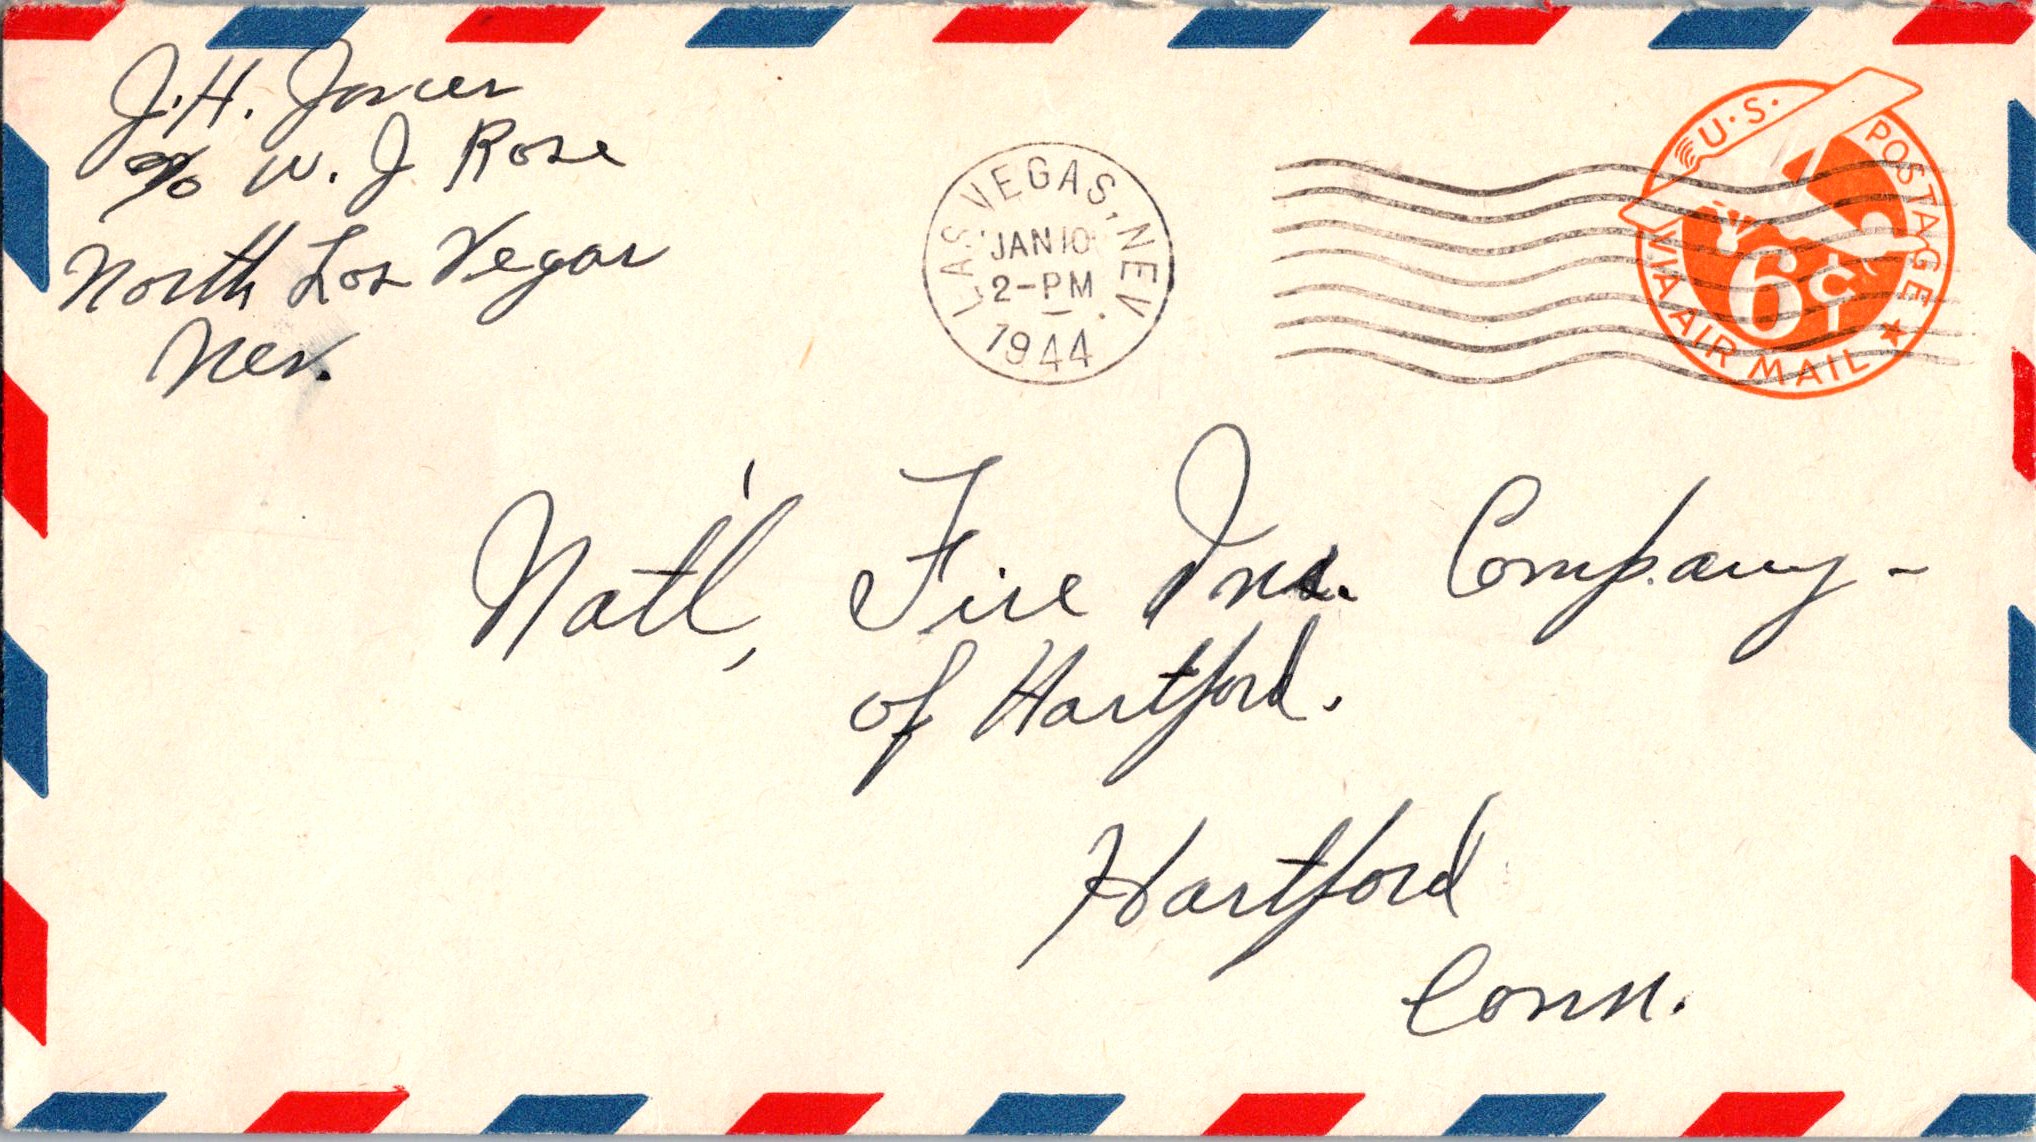 J. H.
c/o W. J Rose
North Las Vegas
Nev.
LAS VEGAS, NEV.
JAN 10
2-PM
1944
U.S. POSTAGE
6¢
VIA AIR MAIL
Nat'l, Fire Ins. Company -
of Hartford.
Hartford
Conn.